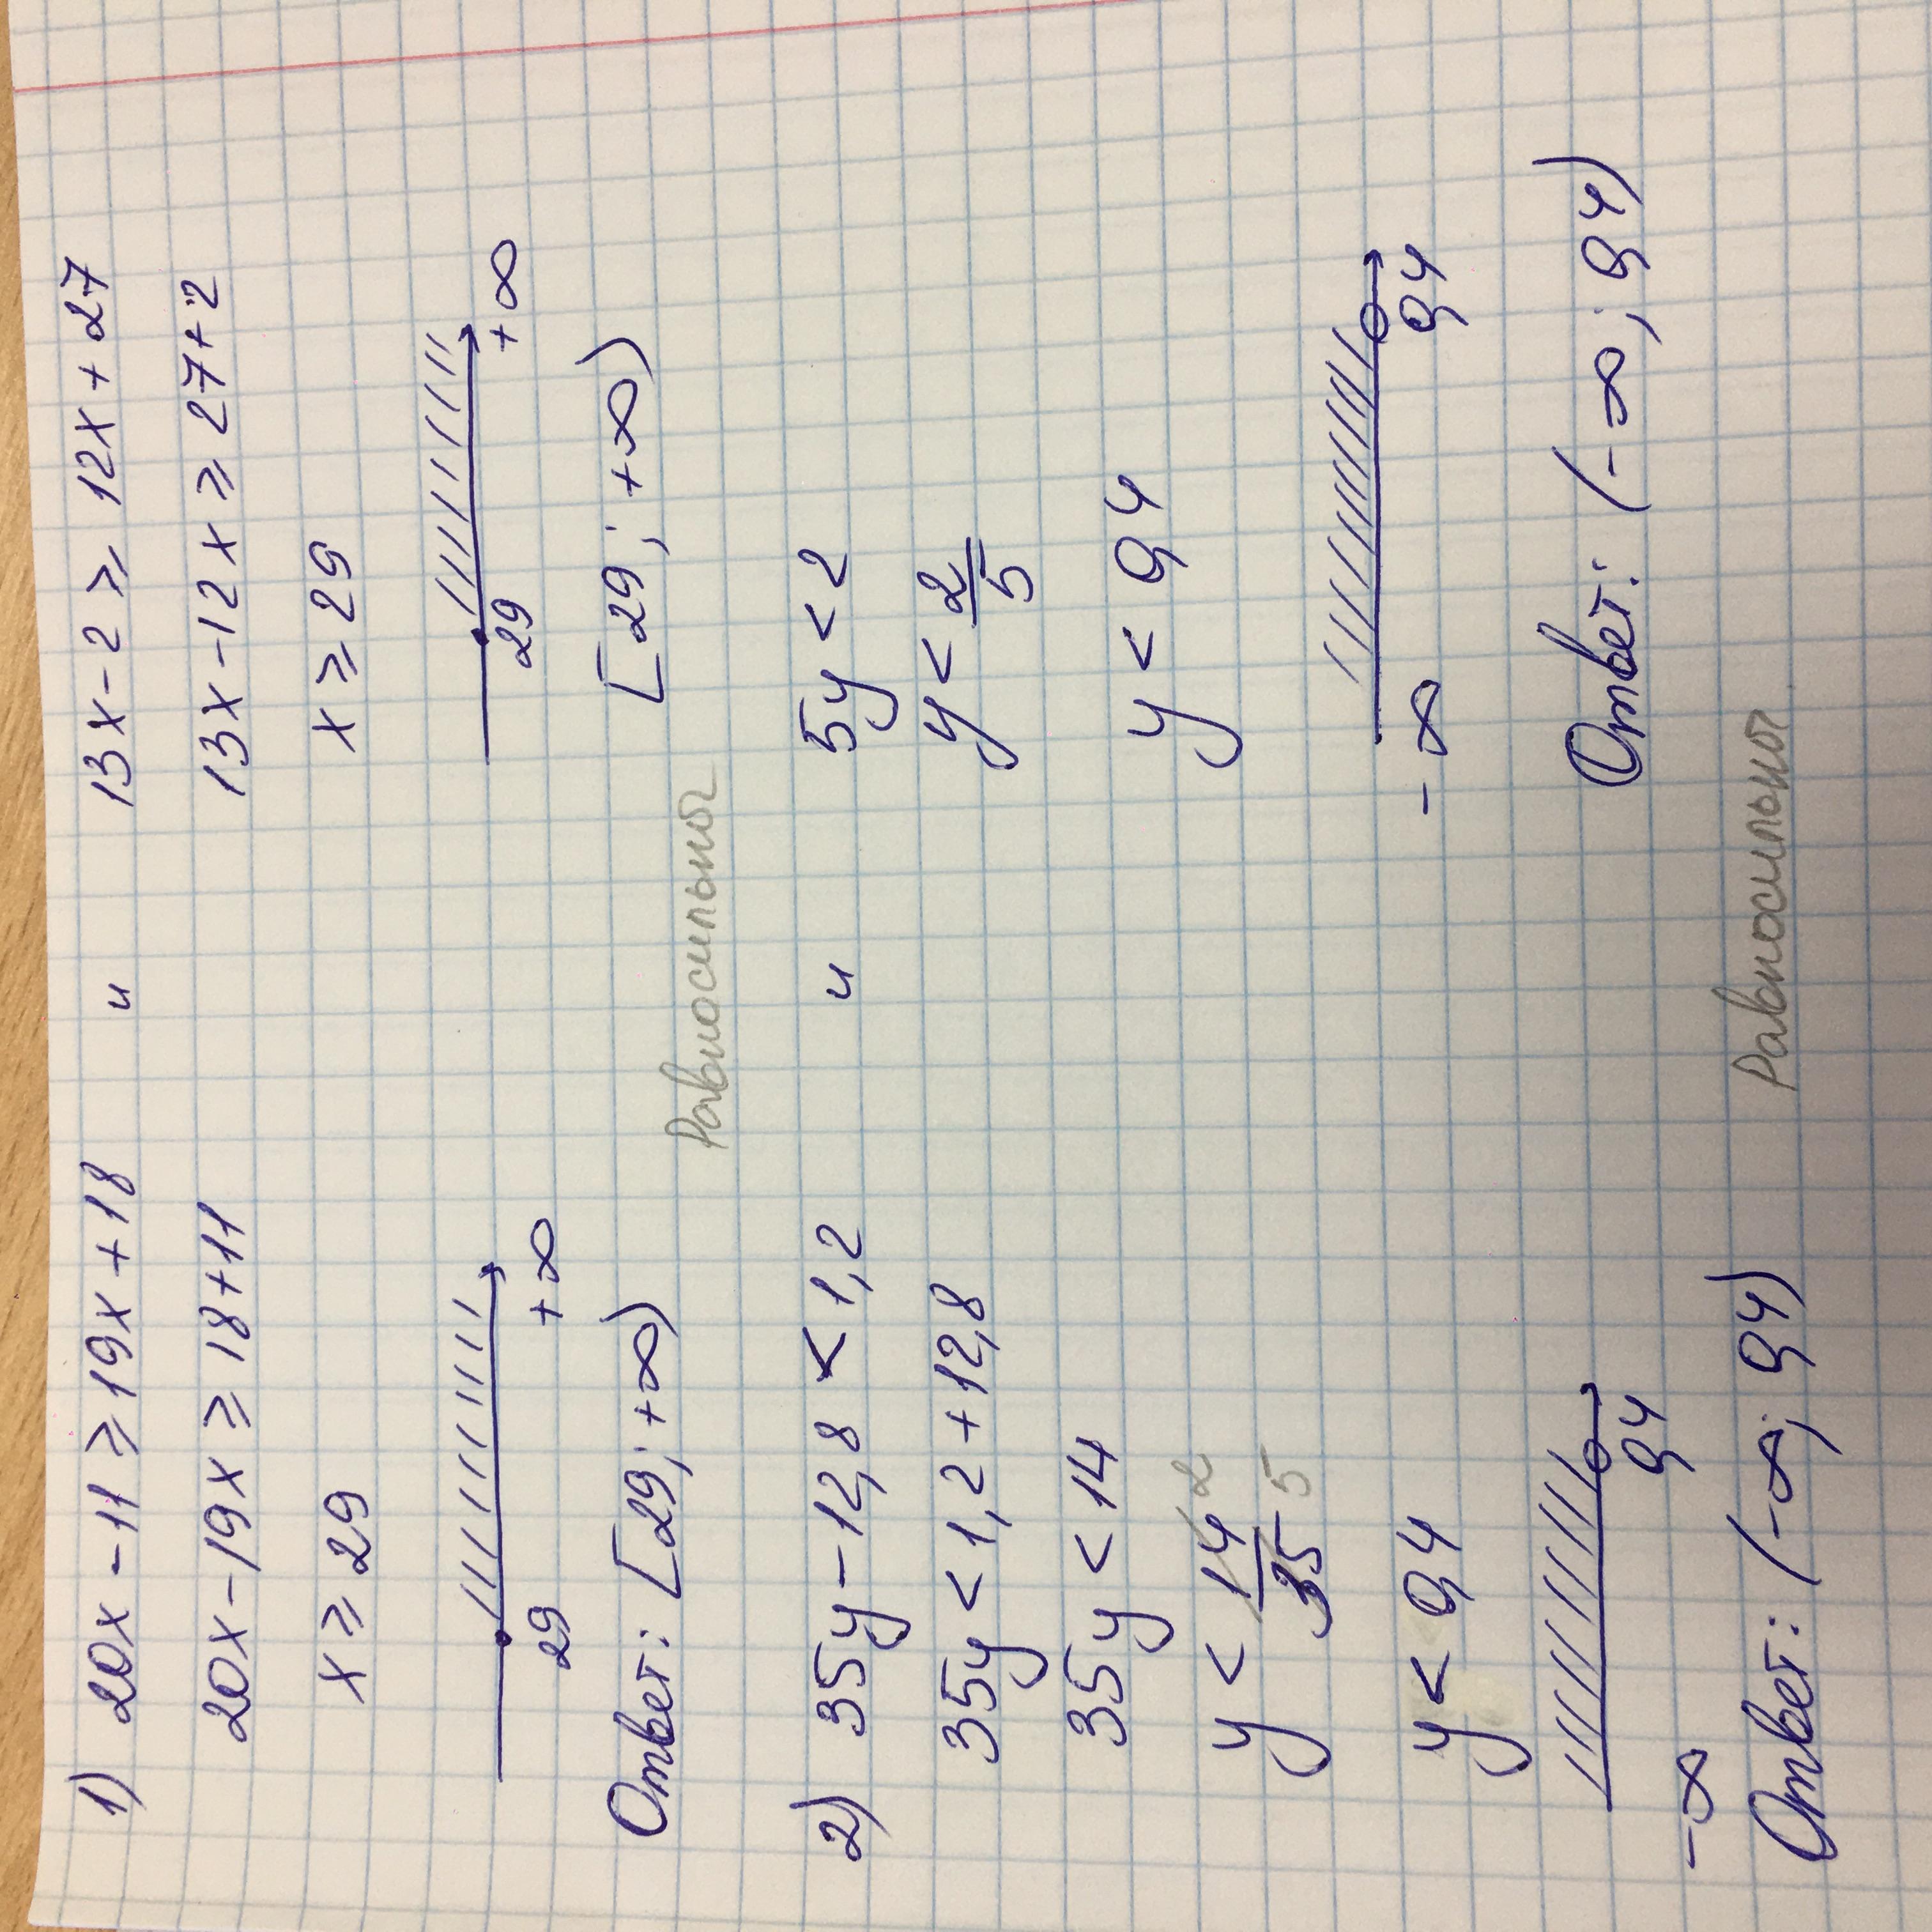 1) 20x - 11 ⩾ 19x + 18 и 13x - 2 ⩾ 12x + 27
20x - 19x ⩾ 18 + 11 13x - 12x ⩾ 27 + 2
x ⩾ 29 x ⩾ 29
29 +∞ 29 +∞
Ответ: [29; +∞) [29; +∞)
Равносильны
2) 35y - 12,8 < 1,2 и 5y < 2
35y < 1,2 + 12,8 y < 2/5
35y < 14 y < 0,4
y < 14/35 2 5
y < 0,4 -∞ 0,4
-∞ 0,4 Ответ: (-∞; 0,4)
Ответ: (-∞; 0,4)
Равносильны